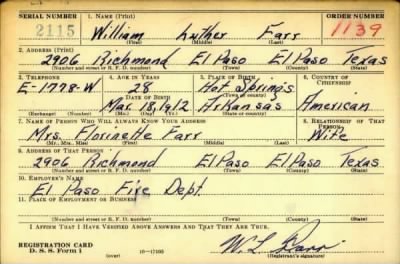 SERIAL NUMBER 1. NAME (Print) ORDER NUMBER
2115 William Luther Farr 1139
(First) (Middle) (Last)
2. ADDRESS (Print)
2906 Richmond El Paso El Paso Texas
(Number and street or R. F. D. number) (Town) (County) (State)
3. TELEPHONE 4. AGE IN YEARS 5. PLACE OF BIRTH 6. COUNTRY OF CITIZENSHIP
E-1778-W 28 Hot Springs
(Town or county)
DATE OF BIRTH
Mar. 18, 1912 Arkansas American
(Exchange) (Number) (Mo.) (Day) (Yr.) (State or country)
7. NAME OF PERSON WHO WILL ALWAYS KNOW YOUR ADDRESS 8. RELATIONSHIP OF THAT PERSON
Mrs. Florinette Farr Wife
(Mr., Mrs., Miss) (First) (Middle) (Last)
9. ADDRESS OF THAT PERSON
2906 Richmond El Paso El Paso Texas
(Number and street or R. F. D. number) (Town) (County) (State)
10. EMPLOYER'S NAME
El Paso Fire Dept.
11. PLACE OF EMPLOYMENT OR BUSINESS
(Number and street or R. F. D. number) (Town) (County) (State)
I AFFIRM THAT I HAVE VERIFIED ABOVE ANSWERS AND THAT THEY ARE TRUE.
REGISTRATION CARD
D. S. S. Form 1 (over) 16—17105 W L Farr
(Registrant's signature)